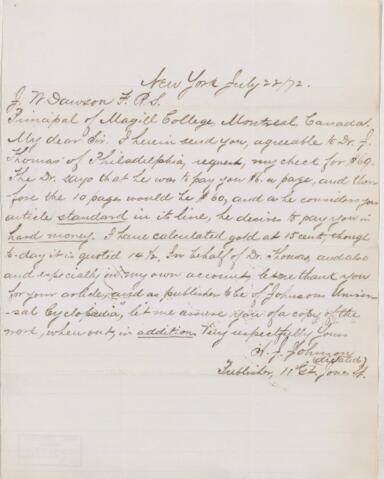 New York July 22/72.
J. W. Dawson F. R. S.
Principal of Magill College Montreal Canada.
My dear Sir. I herein send you, agreeable to Dr. J.
Thomas of Philadelphia, request, my check for $69.
The Dr. says that he was to pay you $6. a page, and there
fore the 10 pages would be $60, and as he considers your
article standard in its line, he desires to pay you in
hard money. I have calculated gold at 15 cent, though
to-day it is quoted 14½. In behalf of Dr. Thomas, and also
and especially on my own account, let me thank you
for your article, and as publisher to be of Johnson Univer
-sal Cyclopædia, let me assure you of a copy of the
work, when out, in addition. Very respectfully Yours
A. J. Johnson
(dictated)
Publisher, 11 Gt. Jones St.